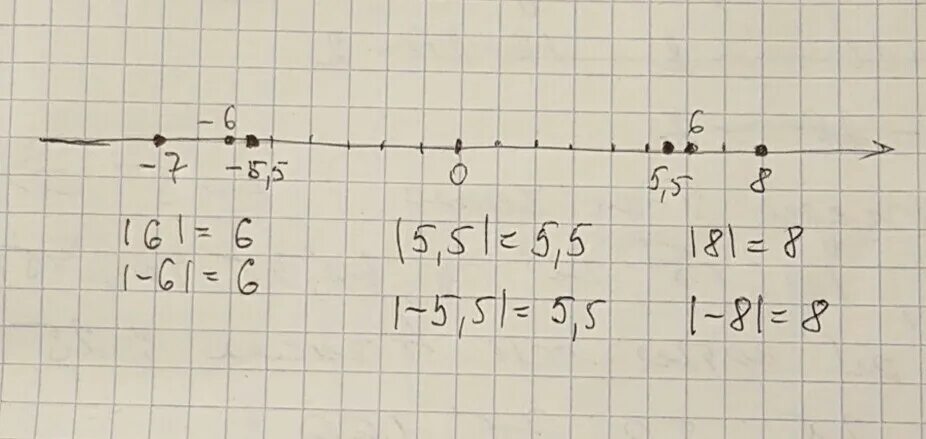 -6 6
-7 -5,5 0 5,5 8
|6| = 6 |5,5| = 5,5 |8| = 8
|-6| = 6 |-5,5| = 5,5 |-8| = 8